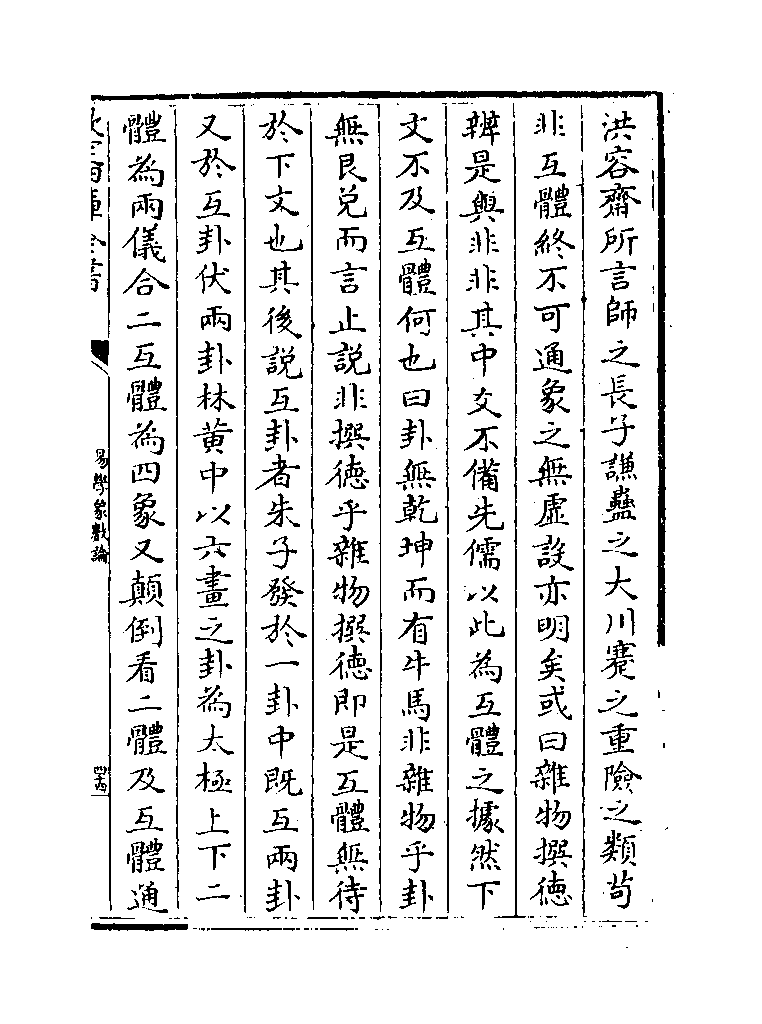 洪容齋所言師之長子謙蠱之大川蹇之重險之類苟
非互體終不可通象之無虛設亦明矣或曰雜物撰德
辨是與非非其中爻不備先儒以此為互體之據然下
文不及互體何也曰卦無乾坤而有牛馬非雜物乎卦
無艮兌而言止說非撰德乎雜物撰德即是互體無待
於下文也其後說互卦者朱子發於一卦中既互兩卦
又於互卦伏兩卦林黄中以六畫之卦為太極上下二
體為兩儀合二互體為四象又顛倒看二體及互體通
易學象數論